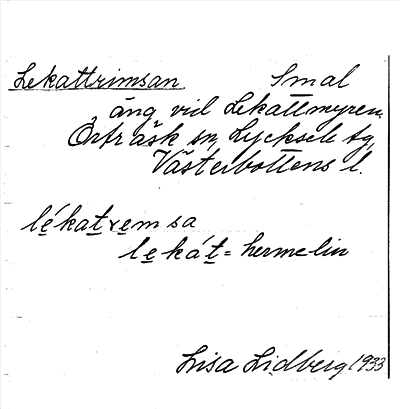 Lekattrimsan Smal
äng vid Lekattmyren.
Örträsk sn, Lycksele tg,
Västerbottens l.
lékatremsa
lekát = hermelin
Lisa Lidberg 1933